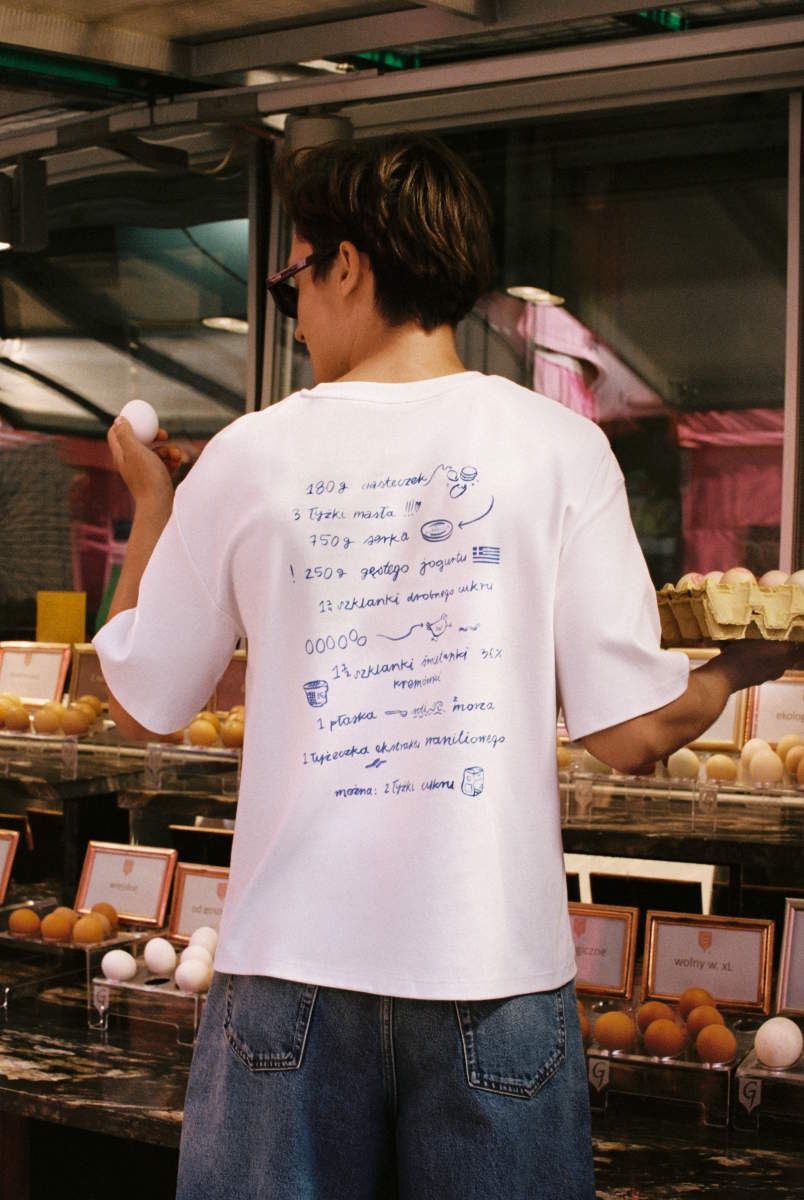 180g ciasteczek
3 łyżki masła !!!
750g serka
! 250g gęstego jogurtu
1 3/4 szklanki drobnego cukru
1 1/2 szklanki śmietanki 36%
kremówki
1 płaska z morza
1 łyżeczka ekstraktu waniliowego
można: 2 łyżki cukru
wiejskie
wolny w. XL
G
G